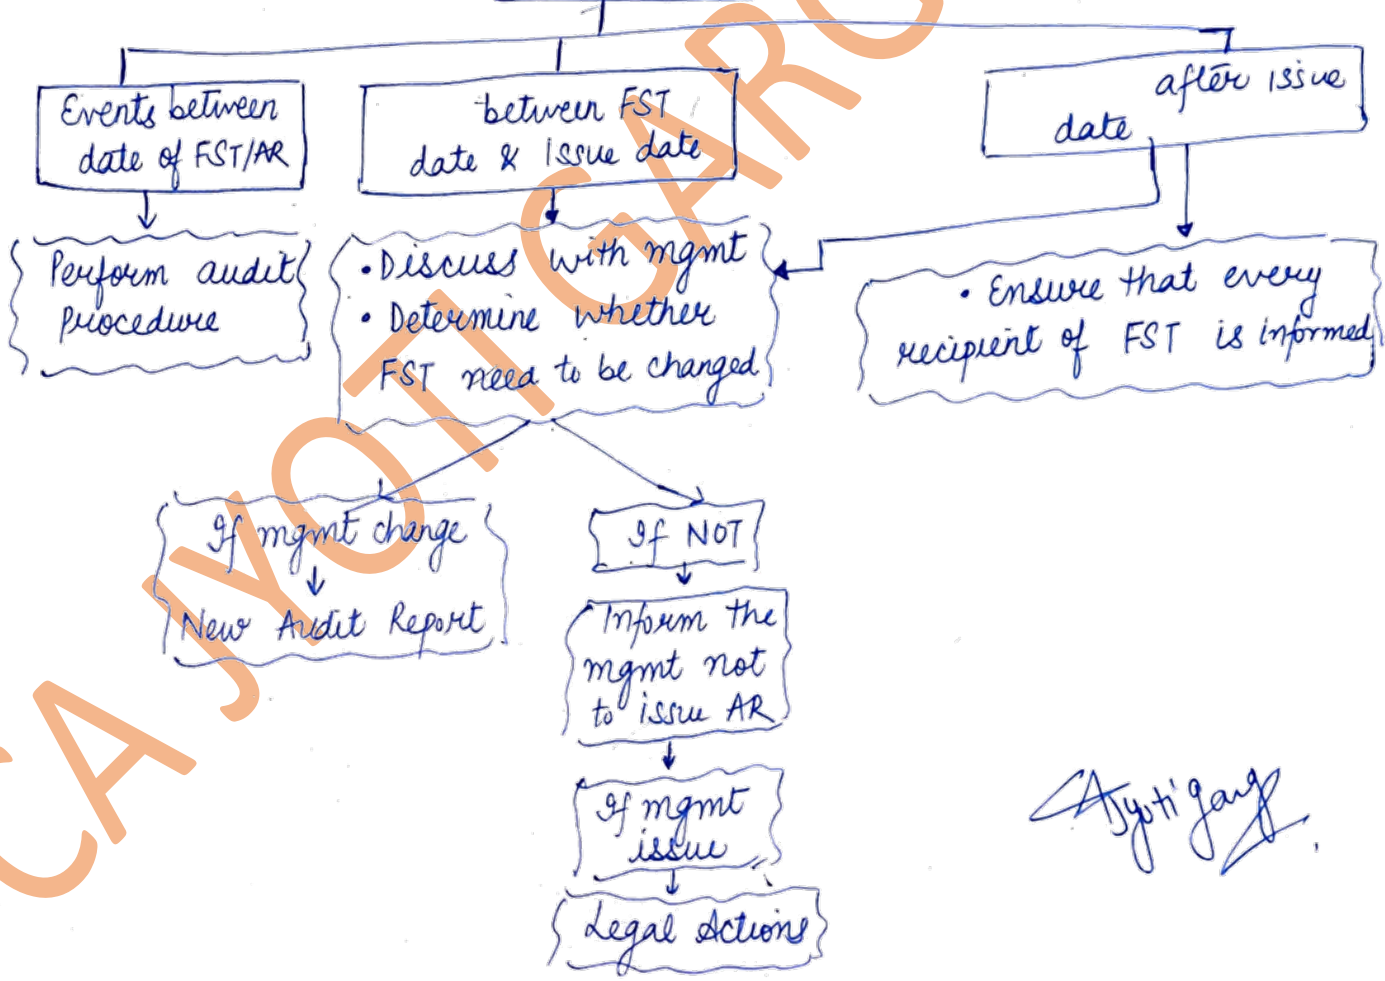 Events between
date of FST/AR
between FST
date & issue date
after issue
date
Perform audit
Procedure
• Discuss with mgmt
• Determine whether
FST need to be changed
• Ensure that every
recipient of FST is informed
If mgmt change
New Audit Report
If NOT
Inform the
mgmt not
to issue AR
If mgmt
issue
Legal Actions
CA Jyoti Garg
CA JYOTI GARG